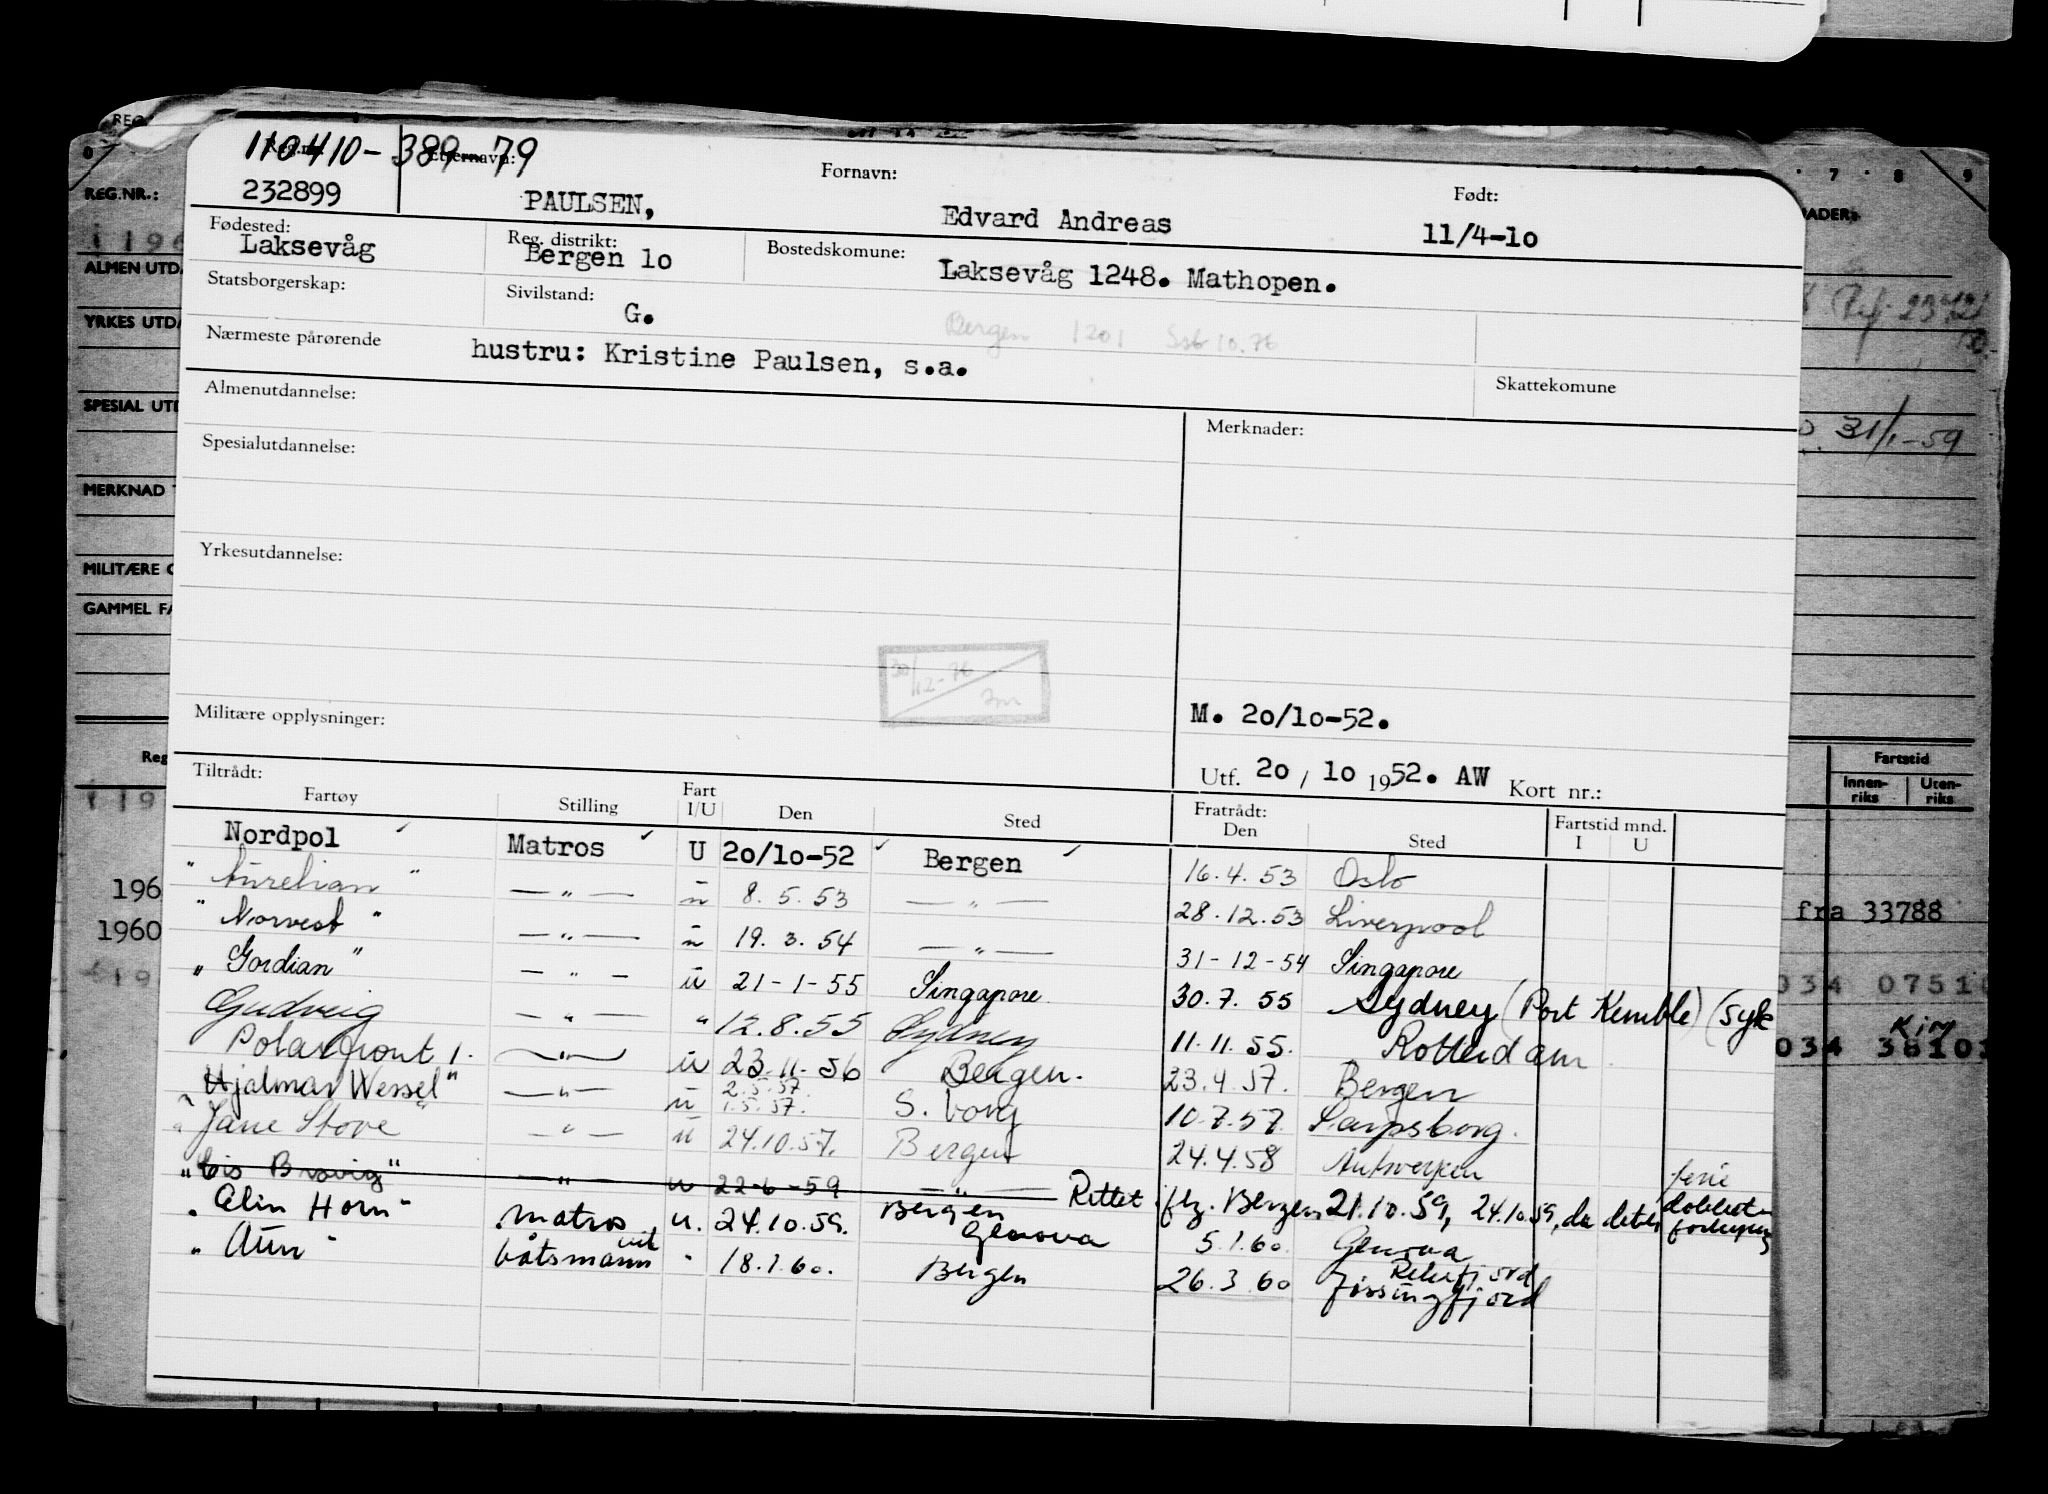 110410-389-79
Reg.nr. Etternavn: Fornavn: Født:
232899 PAULSEN, Edvard Andreas 11/4-1o
Fødested: Reg. distrikt: Bostedskomune:
Laksevåg Bergen 1o Laksevåg 1248. Mathopen.
Statsborgerskap: Sivilstand: G.
Bergen 1201 10.76
Nærmeste pårørende hustru: Kristine Paulsen, s.a.
Skattekomune
Almenutdannelse: Merknader:
Spesialutdannelse:
Yrkesutdannelse:
30/12-76
Militære opplysninger: M. 2o/1o-52.
Utf. 2o / 1o 1952. AW Kort nr.:
Tiltrådt: Fratrådt: Fartstid mnd.
Fartøy Stilling Fart I/U Den Sted Den Sted I U
Nordpol Matros U 2o/1o-52 Bergen 16.4.53 Oslo
" Aurelian " — " — u 8.5.53 — " — 28.12.53 Liverpool
" Norvest " — " — u 19.3.54 — " — 31-12-54 Singapore
" Gordian " — " — u 21-1-55 Singapore 30.7.55 Sydney (Port Kemble) (syk
Gudveig — " — " 12.8.55 Sydney 11.11.55. Rotterdam
Polarfront 1. — " — u 23.11.56 Bergen. 23.4.57. Bergen
Hjalmar Wessel" — " — u 2.5.57 1.5.57. S.borg 10.7.57 Sarpsborg.
" Jane Stove " — " — u 24.10.57. Bergen 24.4.58 Antwerpen
" Cis Brøvig" — " — u 22-6-59 — " — Rettet flz. Bergen 21.10.59, 24.10.59, da det er ferie dobbelt
" Elin Horn " matros u. 24.10.59. Bergen Genova 5.1.60. Genova
" Aun " båtsmann " 18.1.60. Bergen 26.3.60 Jøssingfjord Rekefjord
REG.NR.:
ALMEN UTDA
YRKES UTDA
SPESIAL UTD
MERKNAD
MILITÆRE O
GAMMEL FA
Reg
196
1960
7 8 9
31/1-59
Fartstid
Innen-riks Uten-riks
fra 33788
034 0751
034 38103